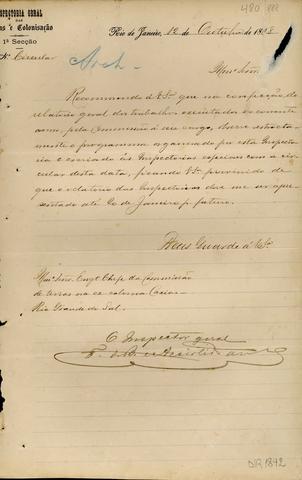 480
INSPECTORIA GERAL
DAS
Terras e Colonisação
1ª Secção
Circular
Rio de Janeiro, 12 de Outubro de 189
Arch.
Illmo Snr.
Recommendo a V.Sª que na confecção do
relatorio geral dos trabalhos executados no corrente
anno, pela Commissão a seu cargo, observe estricta-
mente o programma organisado por esta Inspecto-
ria e enviado ás Inspectorias especiaes com a cir-
cular desta data, ficando V.Sª prevenido de
que o relatorio das Inspectorias deve me ser apre-
sentado até 20 de Janeiro p. futuro.
Deus Guarde a V.Sª
Illmo Snr. Engº Chefe da Commissão
de terras na ex colonia Caxias
Rio Grande do Sul.
O Inspector geral
DIR 1842